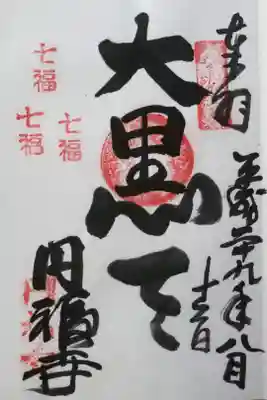 奉拝
平成二十九年八月
十三日
大黒天
七福
七福
七福
円福寺